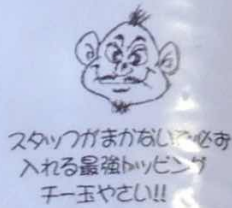 スタッフがまかないで必ず
入れる最強トッピング
チー玉やさい!!